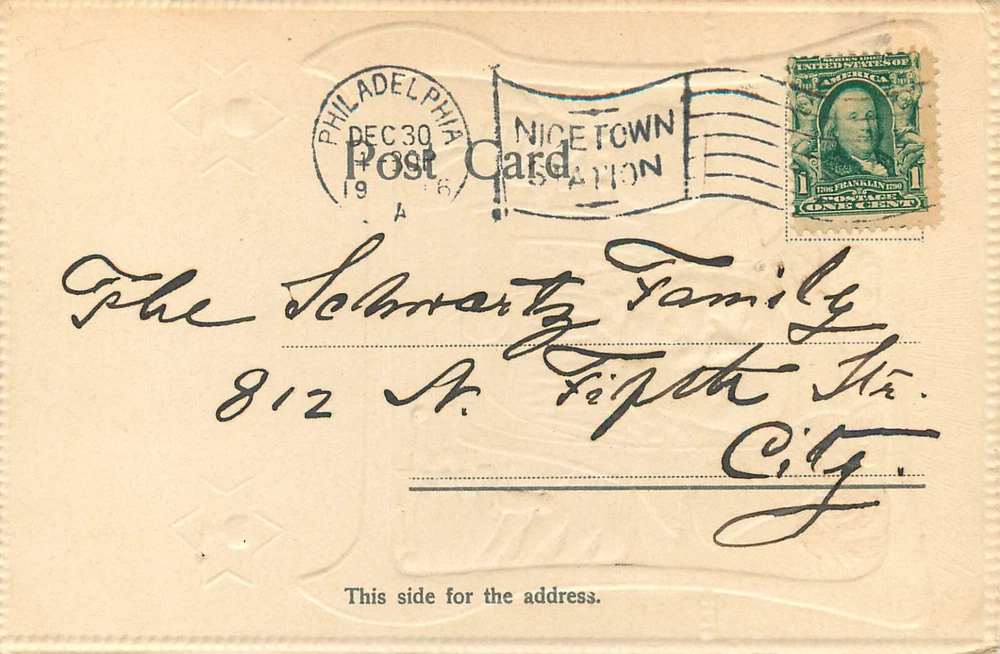 PHILADELPHIA
DEC 30
19 6
A
NICETOWN
STATION
Post Card
SERIES 1902
UNITED STATES OF
AMERICA
1 1706 FRANKLIN 1790 1
POSTAGE
ONE CENT
The Schwartz Family
812 N. Fifth Str.
City.
This side for the address.